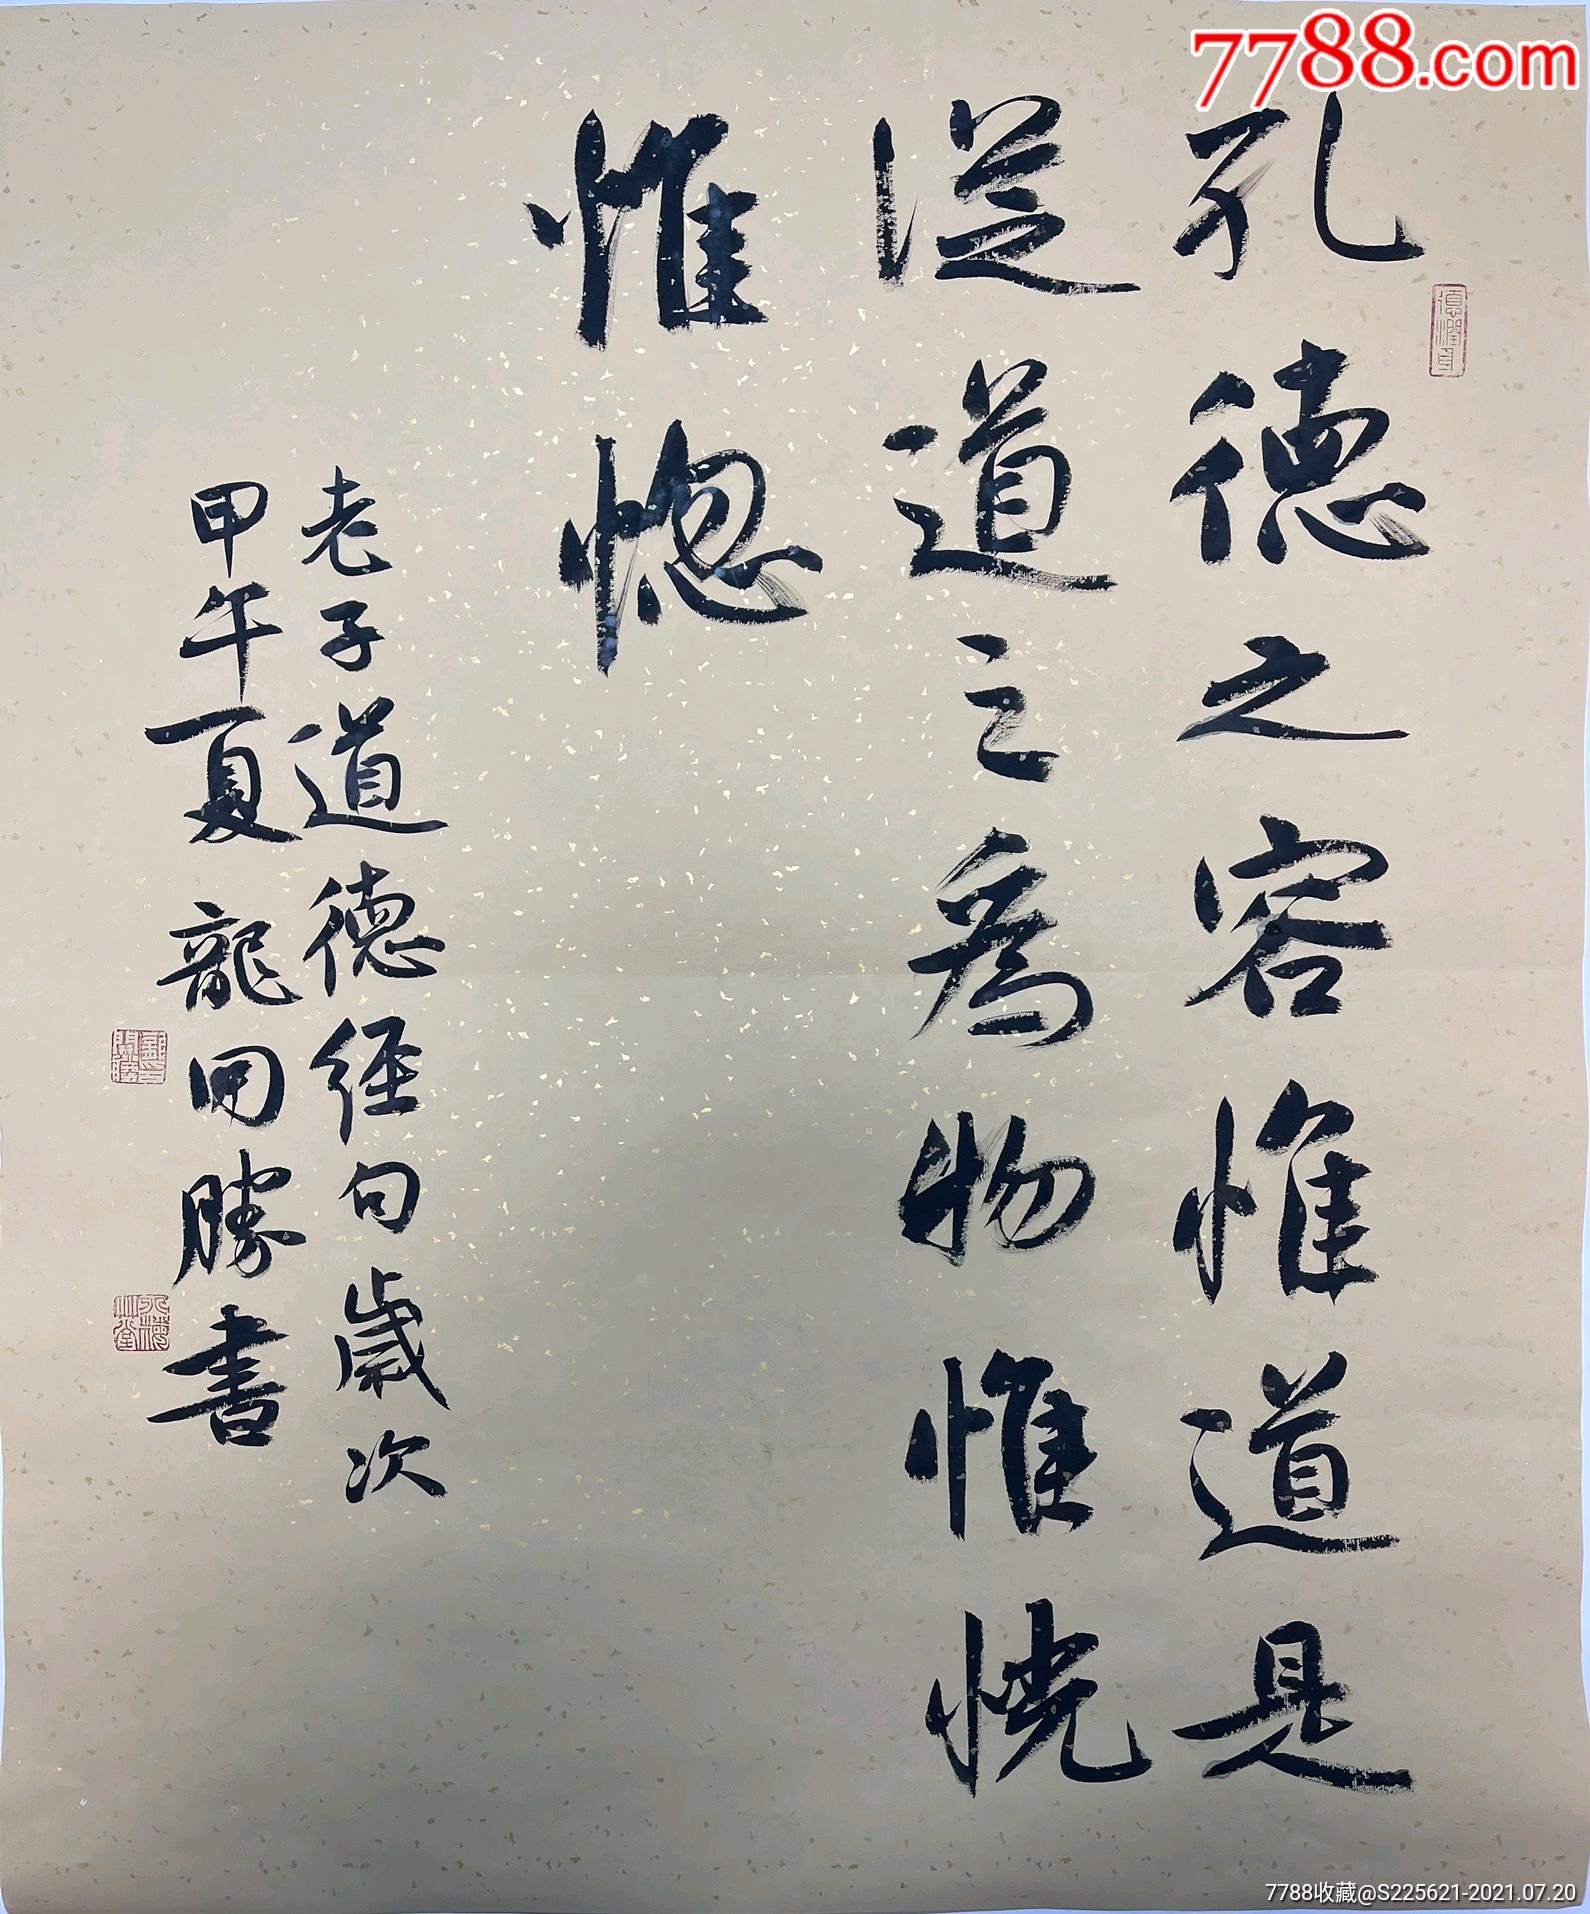 7788.com
孔德之容惟道是
從道之為物惟恍
惟惚
老子道德經句歲次
甲午夏龍開勝書
德潤身
7788收藏@S225621-2021.07.20